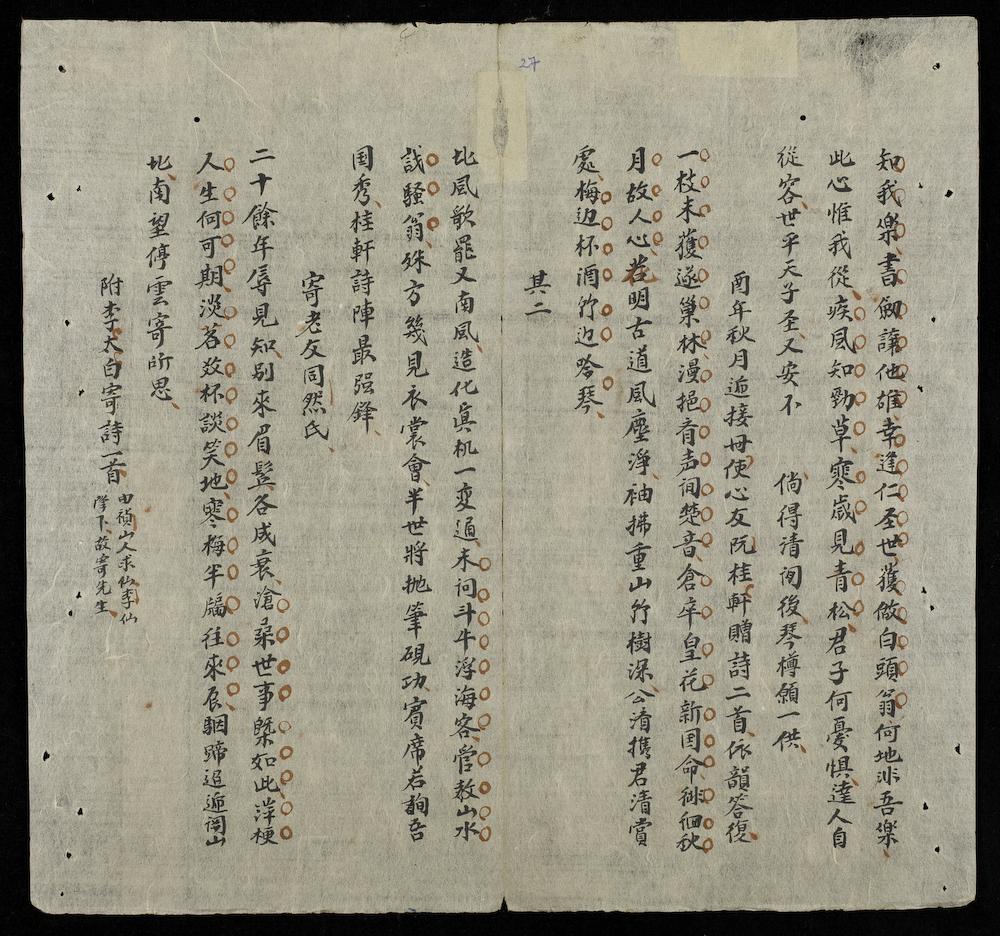 27
知我樂書劔讓他雄幸逢仁圣世獲做白頭翁何地非吾樂
此心惟我從疾風知勁草寒歲見青松君子何憂懼達人自
從容世平天子圣又安不 倘得清閒後琴樽願一供
酉年秋月逅接毋使心友阮桂軒贈詩二首依韻答復
一枝未獲遂巢林漫挹育声问楚音倉卒皇花新国命徘徊秋
月故人心若明古道風塵淨袖拂重山竹樹深公清携君清賞
處梅边杯酒竹边吟琴
其二
北風歌罷又南風造化真机一变通未问斗牛浮海客管教山水
試騷翁殊方幾見衣裳會半世將抛筆硯功賓席若詢吾
国秀桂軒詩陣最强鋒
寄老友同然氏
二十餘年辱見知别來眉鬂各成衰滄桒世事槩如此萍梗
人生何可期淡茗数杯談笑地寒梅半牖往來辰駰蹄迢逓関山
北南望停雲寄所思
附李太白寄詩一首
由禎山人求仙李仙
學下故寄先生